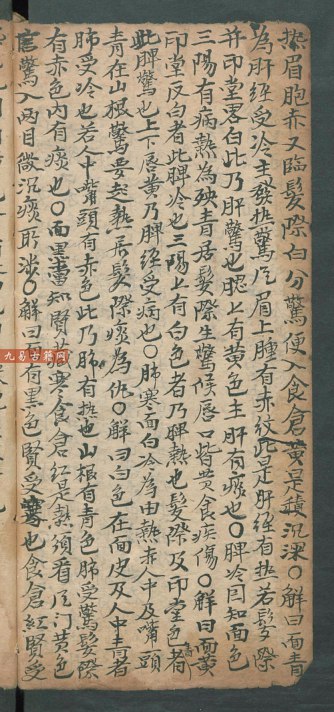 热眉胞赤又临髮際白分驚便入食倉黄是積沉深○解曰面青
為肝經受冷主發热驚凡眉上腫有赤紋此是肝經有热若髮際
并印堂畧白此乃肝驚也腮上有黄色主肝有痰也○脾冷因知面色
三陽有病熱為殃青居髮際生驚候唇口皆黄食疾傷○解曰面黄
印堂反白者此脾冷也三陽上有白色者乃脾熱也髮際及印堂色青者
此脾驚也上下唇黄乃脾經受病也○肺寒面白冷為由熱赤人中及嘴頭
青在山根驚要起熱居髮際痰為仇○解曰白色在面皮及人中青者
肺受冷也若人中嘴頭有赤色此乃肺有热也山根有青色肺受驚髮際
有赤色内有痰也○面黑當知賢藏寒食倉红是熱須看风门黄色
驚入两目微沉痰所○解曰有黑色賢受也食倉红賢受
九易古籍网